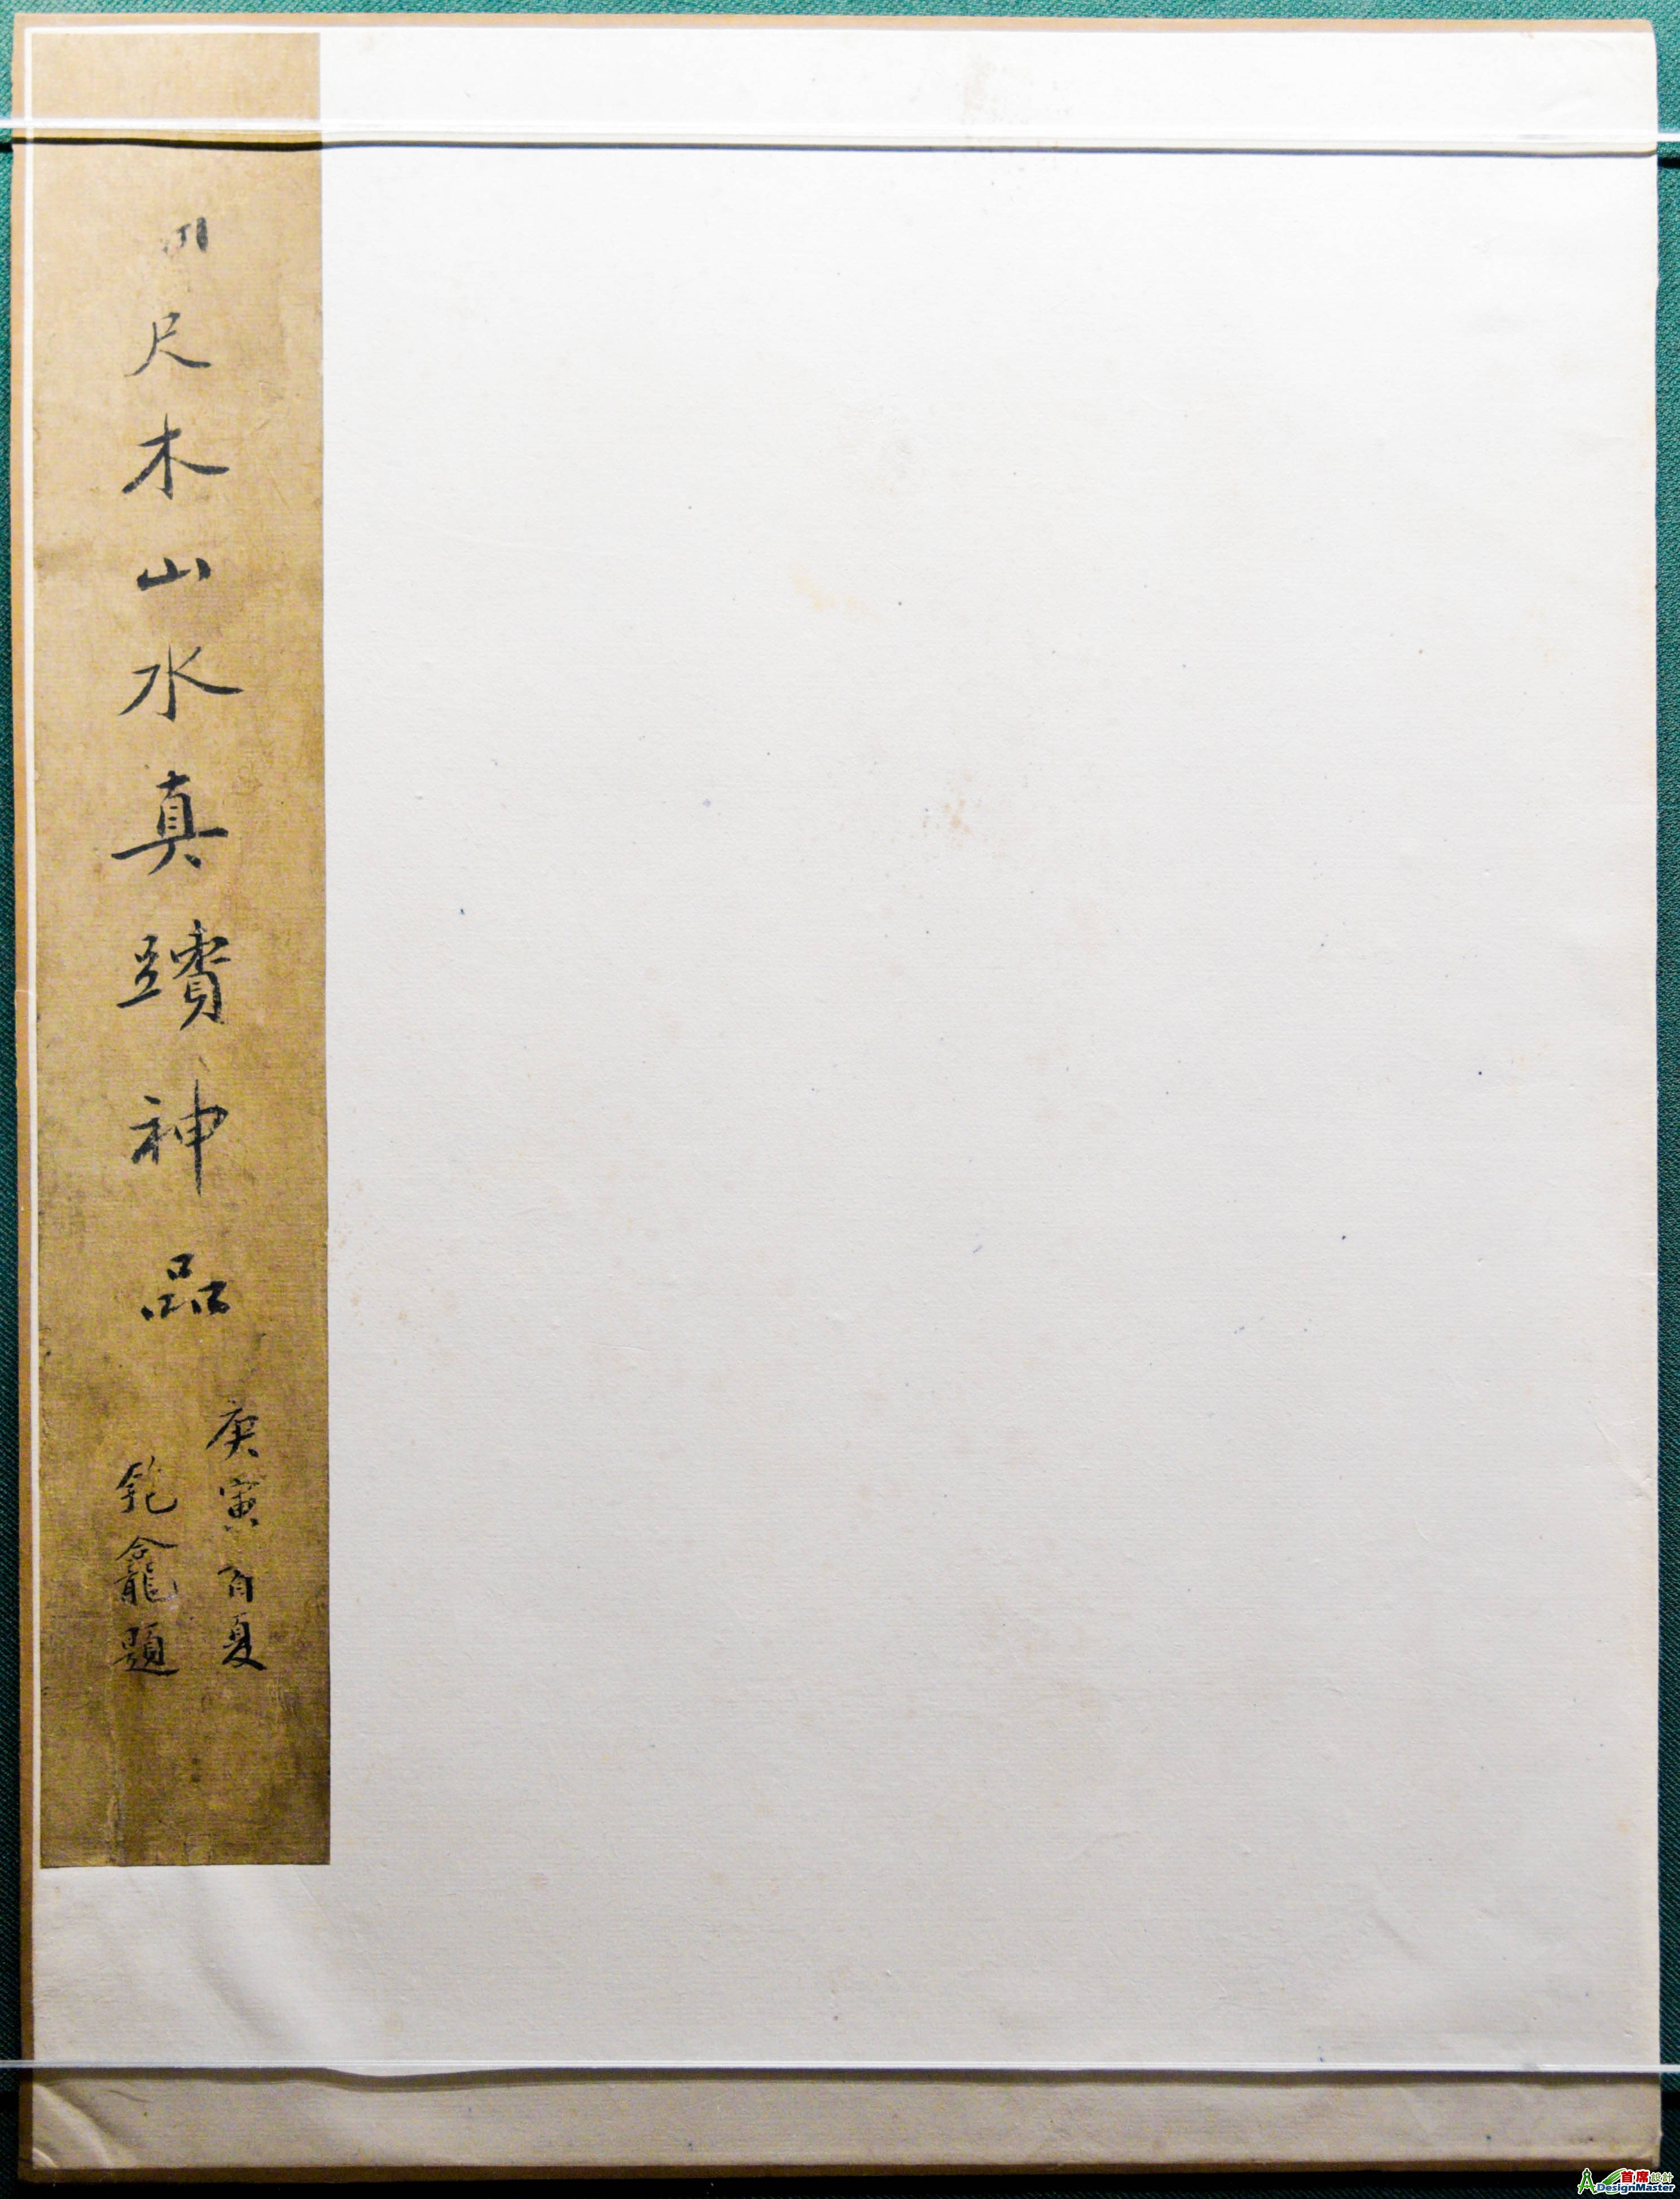 尺木山水真蹟神品
庚寅首夏
龕題
首席設計
DesignMaster